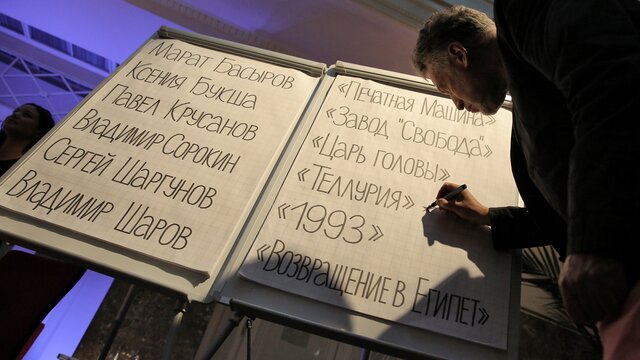 Марат Басыров
Ксения Букша
Павел Крусанов
Владимир Сорокин
Сергей Шаргунов
Владимир Шаров
«Печатная Машина»
«Завод "Свобода"»
«Царь головы»
«Теллурия»
«1993»
«Возвращение в Египет»